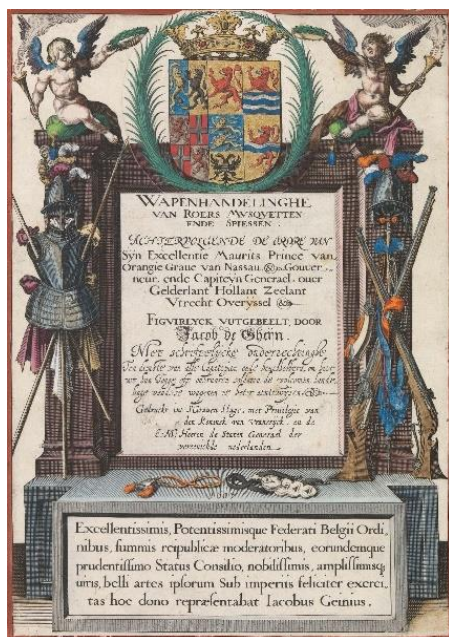 WAPENHANDELINGHE
VAN ROERS MVSQVETTEN
ENDE SPIESSEN.
ACHTERVOLGENDE DE ORDRE VAN
Syn Excellentie Maurits Prince van
Orangie Graue van Nassau &c. Gouver,
neur, ende Capiteyn Generael, ouer
Gelderlant Hollant Zeelant
Vtrecht Overyssel &c
FIGVIRLYCK VUTGEBEELT, DOOR
Jacob de Gheÿn.
Met schriftelycke onderrechtinghe
Gedruckt in s'Graven Hage, met Privilegie van
E. M. Heeren de Staten Generael der
vereenichde nederlanden
Excellentissimis, Potentissimisque Federati Belgii Ordi,
nibus, summis reipublicæ moderatoribus, eorundemque
prudentissimo Status Consilio, nobilissimis, amplissimisq;
uiris, belli artes ipsorum Sub imperiis feliciter exerci,
tas hoc dono repræsentabat Iacobus Geinius.